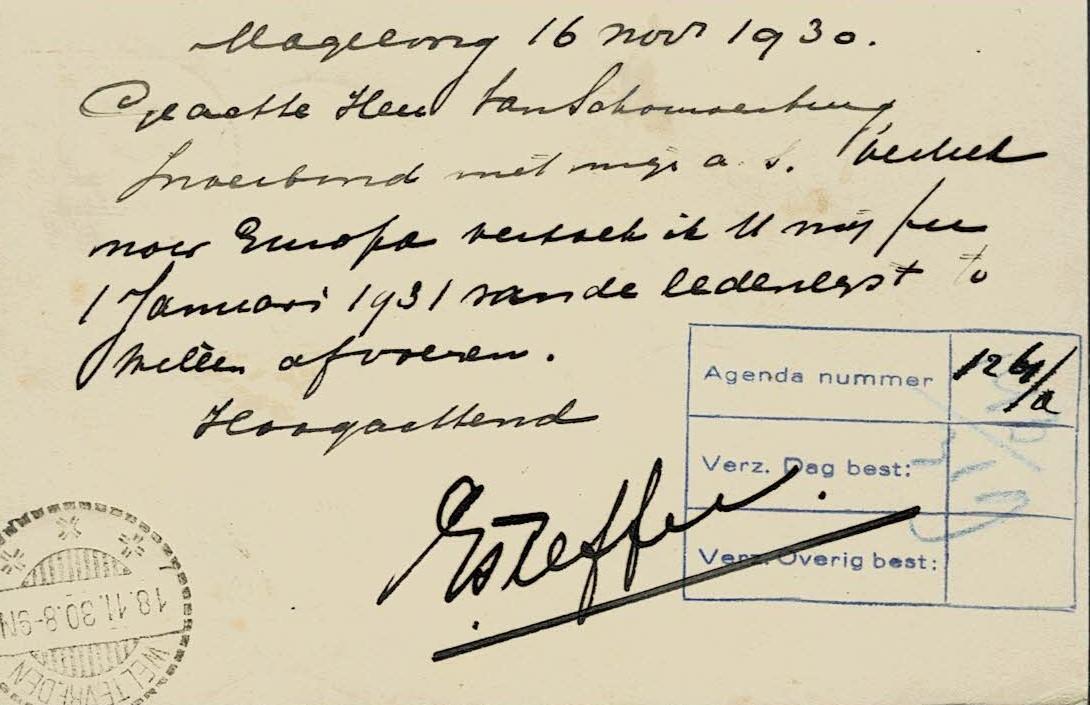 Magelang 16 nov 1930.
Geachte Heer van Schouwenburg,
In verband met mijn a.s. vertrek
naar Europa verzoek ik U mij per
1 Januari 1931 van de ledenlijst te
willen afvoeren.
Hoogachtend
Agenda nummer 1261/a
Verz. Dag best:
Verz. Overig best:
18.11.30.8-9N
WELTEVREDEN